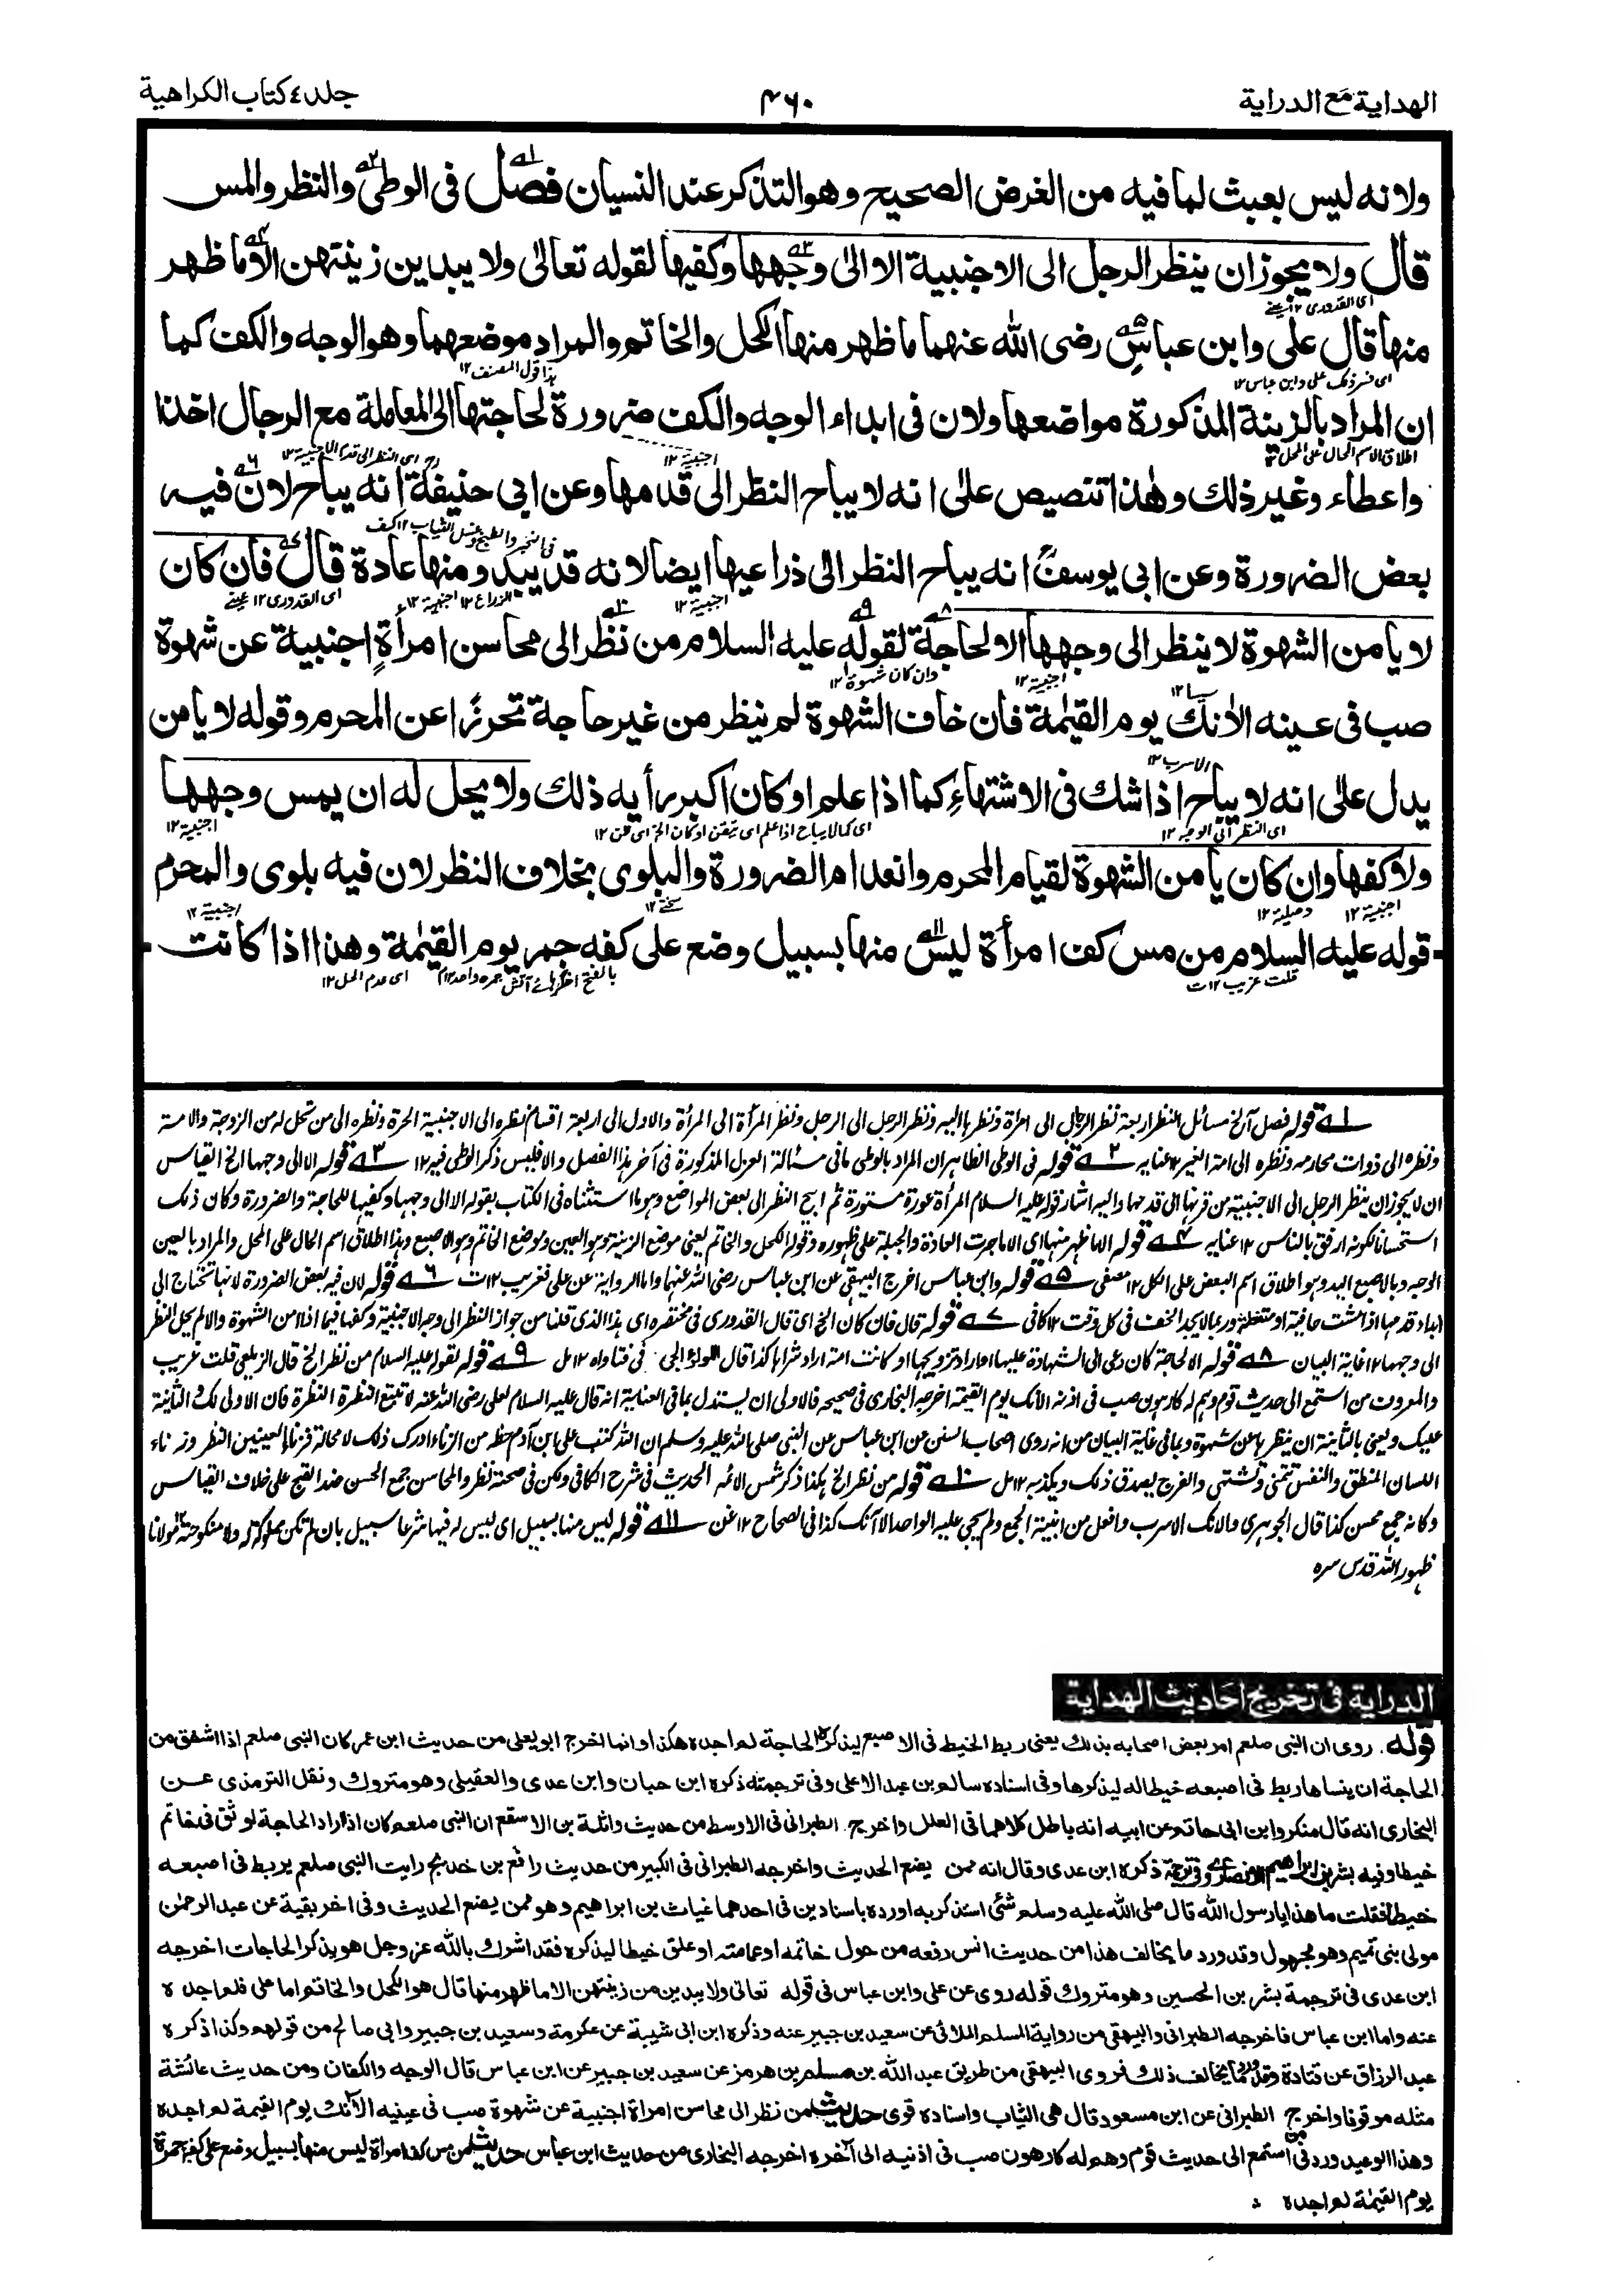 الهداية مع الدراية
٤٦٠
جلد ٤ كتاب الكراهية
ولانه ليس بعبث لما فيه من الغرض الصحيح وهو التذكر عند النسيان فصل في الوطى والنظر والمس
قال ولا يجوز ان ينظر الرجل الى الاجنبية الا الى وجهها وكفيها لقوله تعالى ولا يبدين زينتهن الا ما ظهر
منها قال على وابن عباس رضى الله عنهما ما ظهر منها الكحل والخاتم والمراد موضعهما وهو الوجه والكف كما
ان المراد بالزينة المذكورة مواضعها ولان في ابداء الوجه والكف ضرورة لحاجتها الى المعاملة مع الرجال اخذا
واعطاء وغير ذلك وهذا تنصيص على انه لا يباح النظر الى قدمها وعن ابى حنيفة انه يباح لان فيه
بعض الضرورة وعن ابى يوسف انه يباح النظر الى ذراعيها ايضا لانه قد يبدو منها عادة قال فان كان
لا يامن الشهوة لا ينظر الى وجهها الا لحاجة لقوله عليه السلام من نظر الى محاسن امرأة اجنبية عن شهوة
صب فى عينه الآنك يوم القيمة فان خاف الشهوة لم ينظر من غير حاجة تحرزا عن المحرم وقوله لا يامن
يدل على انه لا يباح اذا شك فى الاشتهاء كما اذا علم او كان اكبر رأيه ذلك ولا يحل له ان يمس وجهها
ولا كفها وان كان يامن الشهوة لقيام المحرم وانعدام الضرورة والبلوى بخلاف النظر لان فيه بلوى والمحرم
قوله عليه السلام من مس كف امرأة ليس منها بسبيل وضع على كفه جمر يوم القيمة وهذا اذا كانت
١ قوله فصل الخ مسائل النظر اربعة نظر الرجل الى امرأة ونظرها اليه ونظر الرجل الى الرجل ونظر المرأة الى المرأة والاول الى اربعة اقسام نظره الى الاجنبية الحرة ونظره الى من تحل له من الزوجة والامة
ونظره الى ذوات محارمه ونظره الى امة الغير ١٢ عنايه ٢ قوله فى الوطى الظاهر ان المراد بالوطى ما فى مسئالة العزل المذكورة فى آخر هذا الفصل والا فليس ذكر الوطى فيه ١٢ ٣ قوله الا الى وجهها الخ القياس
ان لا يجوز ان ينظر الرجل الى الاجنبية من قرنها الى قدمها واليه اشار قوله عليه السلام المرأة عورة مستورة ثم ابيح النظر الى بعض المواضع وهو ما استثناه فى الكتاب بقوله الا الى وجهها وكفيها للحاجة والضرورة وكان ذلك
استحسانا لكونه ارفق بالناس ١٢ عنايه ٤ قوله الا ما ظهر منها اى الا ما جرت العادة والجبلة على ظهوره وقوله الكحل والخاتم يعنى موضع الزينة وهو العين وموضع الخاتم وهو الاصبع وهذا اطلاق اسم الحال على المحل والمراد بالعين
الوجه وبالاصبع اليد وهو اطلاق اسم البعض على الكل ١٢ ٥ قوله وابن عباس اخرج البيهقى عن ابن عباس رضى الله عنهما واما الرواية عن على فغريب ١٢ ت ٦ قوله لان فيه بعض الضرورة لانها تحتاج الى
ابداء قدمها اذا مشت حافية او متنعلة وربما لا يجد الخف فى كل وقت ١٢ كافى ٧ قوله قال فان كان الخ اى قال القدورى فى مختصره اى هذا الذى قلنا من جواز النظر الى وجه الاجنبية وكفها فيما اذا امن الشهوة والا لم يحل النظر
الى وجهها ١٢ غاية البيان ٨ قوله الا لحاجة كان دعى الى الشهادة عليها او اراد تزويجها او كانت امة اراد شراها كذا قال الولوالجى فى فتاواه ١٢ مل ٩ قوله لقوله عليه السلام من نظر الخ قال الزيلعى قلت غريب
والمعروف من استمع الى حديث قوم وهم له كارهون صب فى اذنه الآنك يوم القيمة اخرجه البخارى فى صحيحه فالاولى ان يستدل بما فى العناية انه قال عليه السلام لعلى رضى الله عنه لا تتبع النظرة النظرة فان الاولى لك والثانية
عليك ويعنى بالثانية ان ينظر بها عن شهوة وبما فى غاية البيان من انه روى اصحاب السنن عن ابن عباس عن النبى صلى الله عليه وسلم ان الله كتب على ابن آدم حظه من الزناء ادرك ذلك لا محالة فزنا العينين النظر وزناء
اللسان المنطق والنفس تتمنى وتشتهى والفرج يصدق ذلك ويكذبه ١٢ مل ١٠ قوله من نظر الخ هكذا ذكر شمس الائمه الحديث فى شرح الكافى ولكن فى صحته نظر والمحاسن جمع الحسن ضد القبح على خلاف القياس
وكانه جمع محسن كذا قال الجوهرى والآنك الاسرب وافعل من ابنية الجمع ولم يجئ عليه الواحد الا آنك كذا فى الصحاح ١٢ ١١ قوله ليس منها بسبيل اى ليس له فيها شرعا سبيل بان لم تكن مملوكة له ولا منكوحته ١٢ مولانا
ظهور الله قدس سره
الدراية فى تخريج احاديث الهداية
قوله. روى ان النبى صلعم امر بعض اصحابه بذلك يعنى ربط الخيط فى الاصبع ليذكر الحاجة لم اجده هكذا وانما اخرج ابو يعلى من حديث ابن عمر كان النبى صلعم اذا اشفق من
الحاجة ان ينساها ربط فى اصبعه خيطا له ليذكرها وفى اسناده سالم بن عبد الاعلى وفى ترجمته ذكره ابن حبان وابن عدى والعقيلى وهو متروك ونقل الترمذى عن
البخارى انه قال منكر وابن ابى حاتم عن ابيه انه باطل كلاهما فى العلل واخرج. الطبرانى فى الاوسط من حديث واثلة بن الاسقع ان النبى صلعم كان اذا اراد الحاجة لوثق فى خاتم
خيطا وفيه بشر بن ابراهيم الانصارى وفى ترجمة ذكره ابن عدى وقال انه ممن يضع الحديث واخرجه الطبرانى فى الكبير من حديث رافع بن خديج رايت النبى صلعم يربط فى اصبعه
خيطا فقلت ما هذا يا رسول الله قال صلى الله عليه وسلم شئ استذكر به اورده باسنادين فى احدهما غياث بن ابراهيم وهو ممن يضع الحديث وفى اخر بقية عن عبد الرحمن
مولى بنى تميم وهو مجهول وقد ورد ما يخالف هذا من حديث انس رفعه من حول خاتمه او عمامته او علق خيطا ليذكره فقد اشرك بالله عز وجل هو يذكر الحاجات اخرجه
ابن عدى فى ترجمة بشر بن الحسين وهو متروك قوله روى عن على وابن عباس فى قوله تعالى ولا يبدين من زينتهن الا ما ظهر منها قال هو الكحل والخاتم اما على فلم اجده
عنه واما ابن عباس فاخرجه الطبرانى والبيهقى من رواية المسلم الملائى عن سعيد بن جبير عنه وذكره ابن ابى شيبة عن عكرمة وسعيد بن جبير وابى صالح من قولهم وكذا ذكره
عبد الرزاق عن قتادة وقد ورد ما يخالف ذلك فروى البيهقى من طريق عبد الله بن مسلم بن هرمز عن سعيد بن جبير عن ابن عباس قال الوجه والكفان ومن حديث عائشة
مثله موقوفا واخرج الطبرانى عن ابن مسعود قال هى الثياب واسناده قوى حديث من نظر الى محاسن امراة اجنبية عن شهوة صب فى عينيه الآنك يوم القيمة لم اجده
وهذا الوعيد ورد فى من استمع الى حديث قوم وهم له كارهون صب فى اذنيه الى آخره اخرجه البخارى من حديث ابن عباس حديث من مس كف امراة ليس منها بسبيل وضع على كفه جمرة
يوم القيمة لم اجده